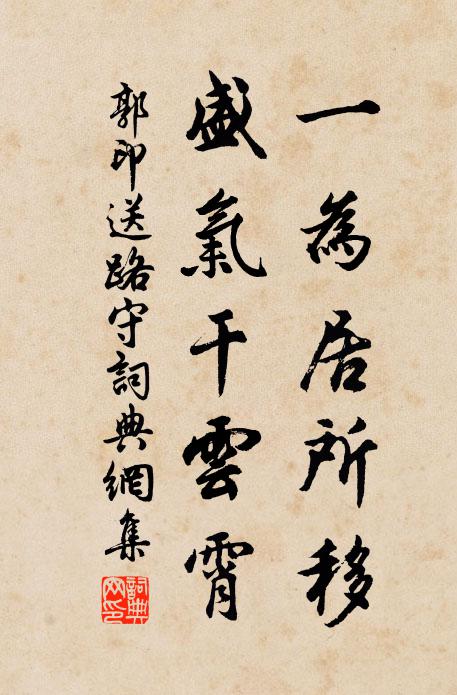 一為居所移
盛氣干雲霄
郭印送路守詞典網集
詞典網印